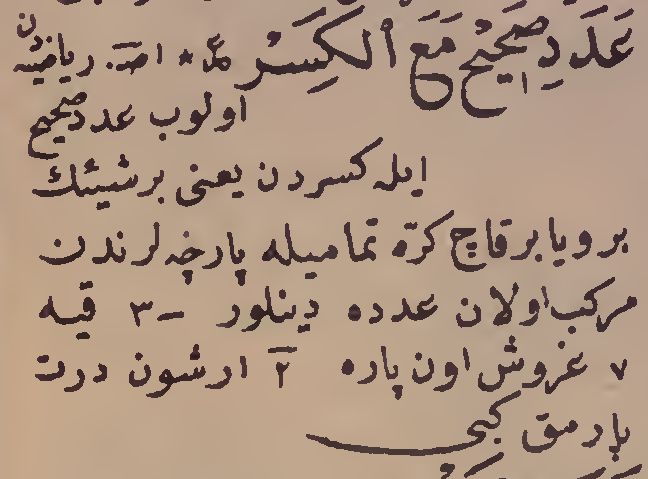 عَدَدِ صَحِيْحْ مَعَ ٱلْكَسِرْ ع * اصـ. رياضيّون
اولوب عدد صحيح
ايله كسردن يعنى بر شيئك
بر ويا بر قاچ كرّه تماميله پارچه لرندن
مركب اولان عدده دينلور – ٣ قيه
٧ غروش اون پاره ٢ ارشون درت
پارمق كبى